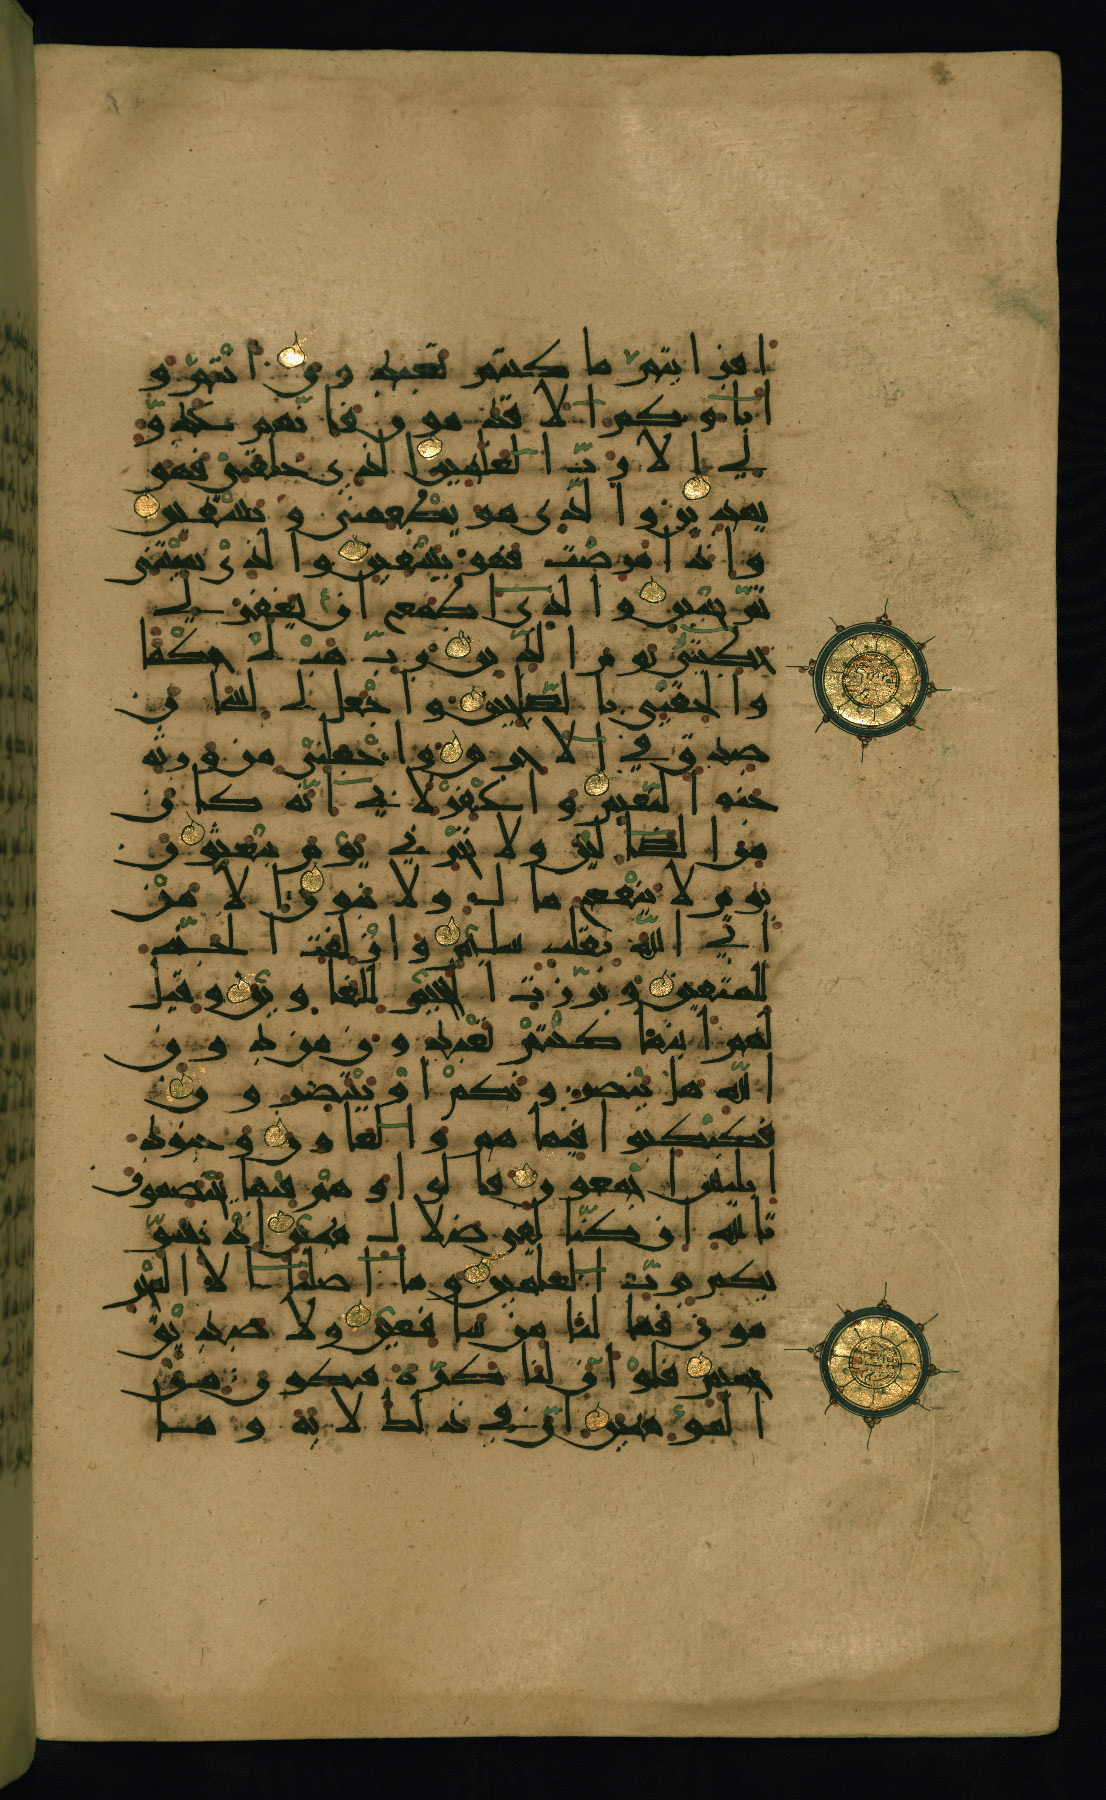 افرايتم ما كنتم تعبدون انتم و
اباوكم الاقدمون فانهم عدو
لي الا رب العلمين الذي خلقني فهو
يهدين والذي هو يطعمني ويسقين
واذا مرضت فهو يشفين والذي يميتني
ثم يحيين والذي اطمع ان يغفر لي
خطيتي يوم الدين رب هب لي حكما
والحقني بالصلحين واجعل لي لسان
صدق في الاخرين واجعلني من ورثة
جنة النعيم واغفر لابي انه كان
من الضالين ولا تخزني يوم يبعثون
يوم لا ينفع مال ولا بنون الا من
اتي الله بقلب سليم وازلفت الجنة
للمتقين وبرزت الجحيم للغاوين وقيل
لهم اينما كنتم تعبدون من دون
الله هل ينصرونكم او ينتصرون
فكبكبوا فيها هم والغاون وجنود
ابليس اجمعون قالوا وهم فيها يختصمون
تالله ان كنا لفي ضلال مبين اذ نسو
يكم برب العلمين وما اضلنا الا المجر
مون فما لنا من شافعين ولا صديق
حميم فلو ان لنا كرة فنكون من
المومنين ان في ذلك لاية وما